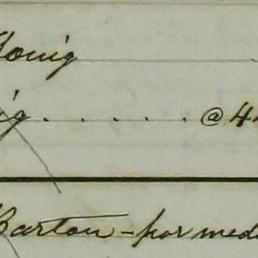 Konig
ig . . . . . @ 44
Barton - for med